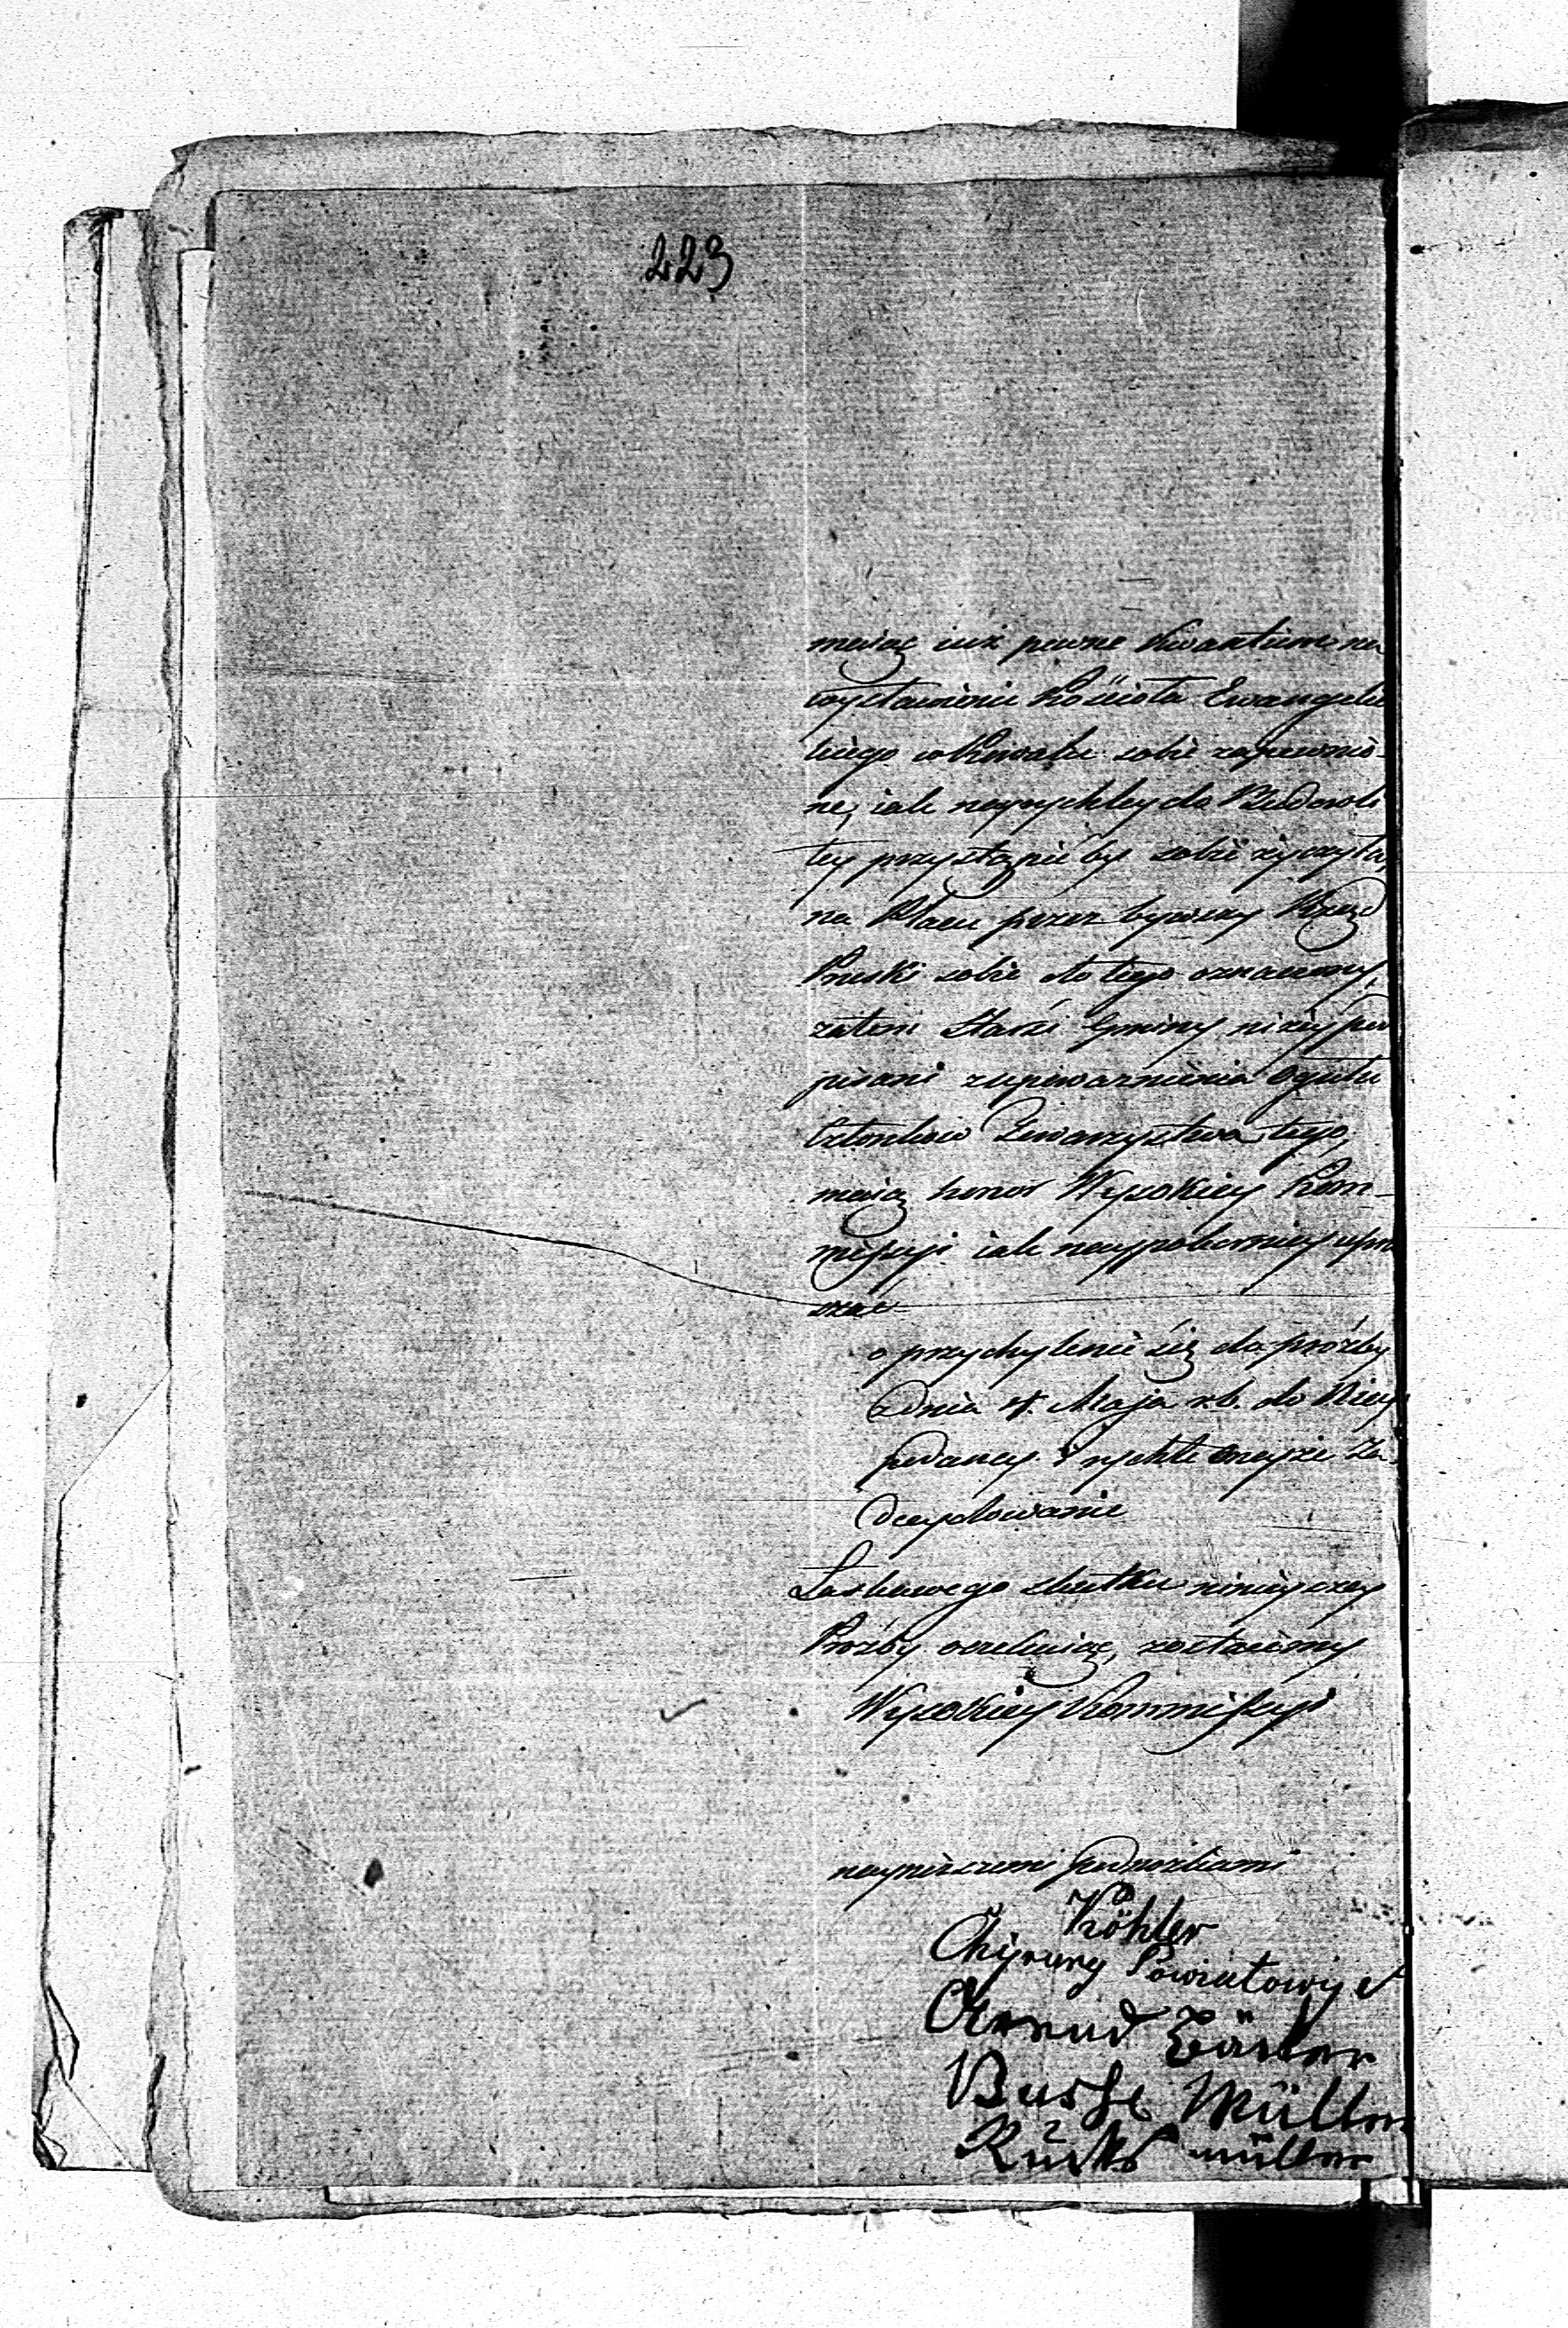 223
maiąc iuż pewne Kwantum na
wystawienie Kościoła Ewangelic
kiego w Kowalu sobie zapewnio-
ne, iak nayrychley do Budowli
tey przystąpić by sobie życzyła,
na Placu przez bywszy Rząd
Pruski sobie do tego oznaczony,
zatem Starsi Gminy niżey pod
pisani z upoważnienia Ogułu
Członków Towarzystwa tego,
maią honor Wysokiey Kom-
missyi iak naypokorniey upra
szać
o przychylenie się do prożby
z dnia Maja r.b. do Niey
podaney i rychłe onejże Za-
decydowanie
Łaskawego skutku ninieyszey
Prożby oczekuiąc, zostaiemy
Wysokiey Kommissyi
nayniższemi podnożkami
Köhler
Chyrurg Powiatowy
Busse Müller
Müller